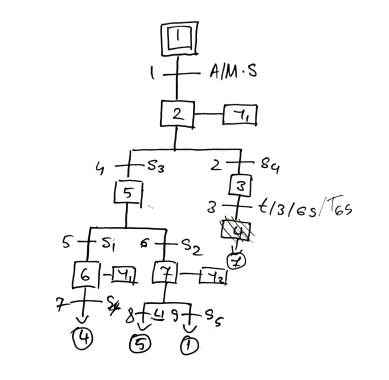 1
1 A/M·S
2 Y1
4 S3 2 S4
5 3
3 t/3/6s/T6s
5 S1 6 S2
7
6 Y1 7 Y2
7
8 9 S5
4 5 1